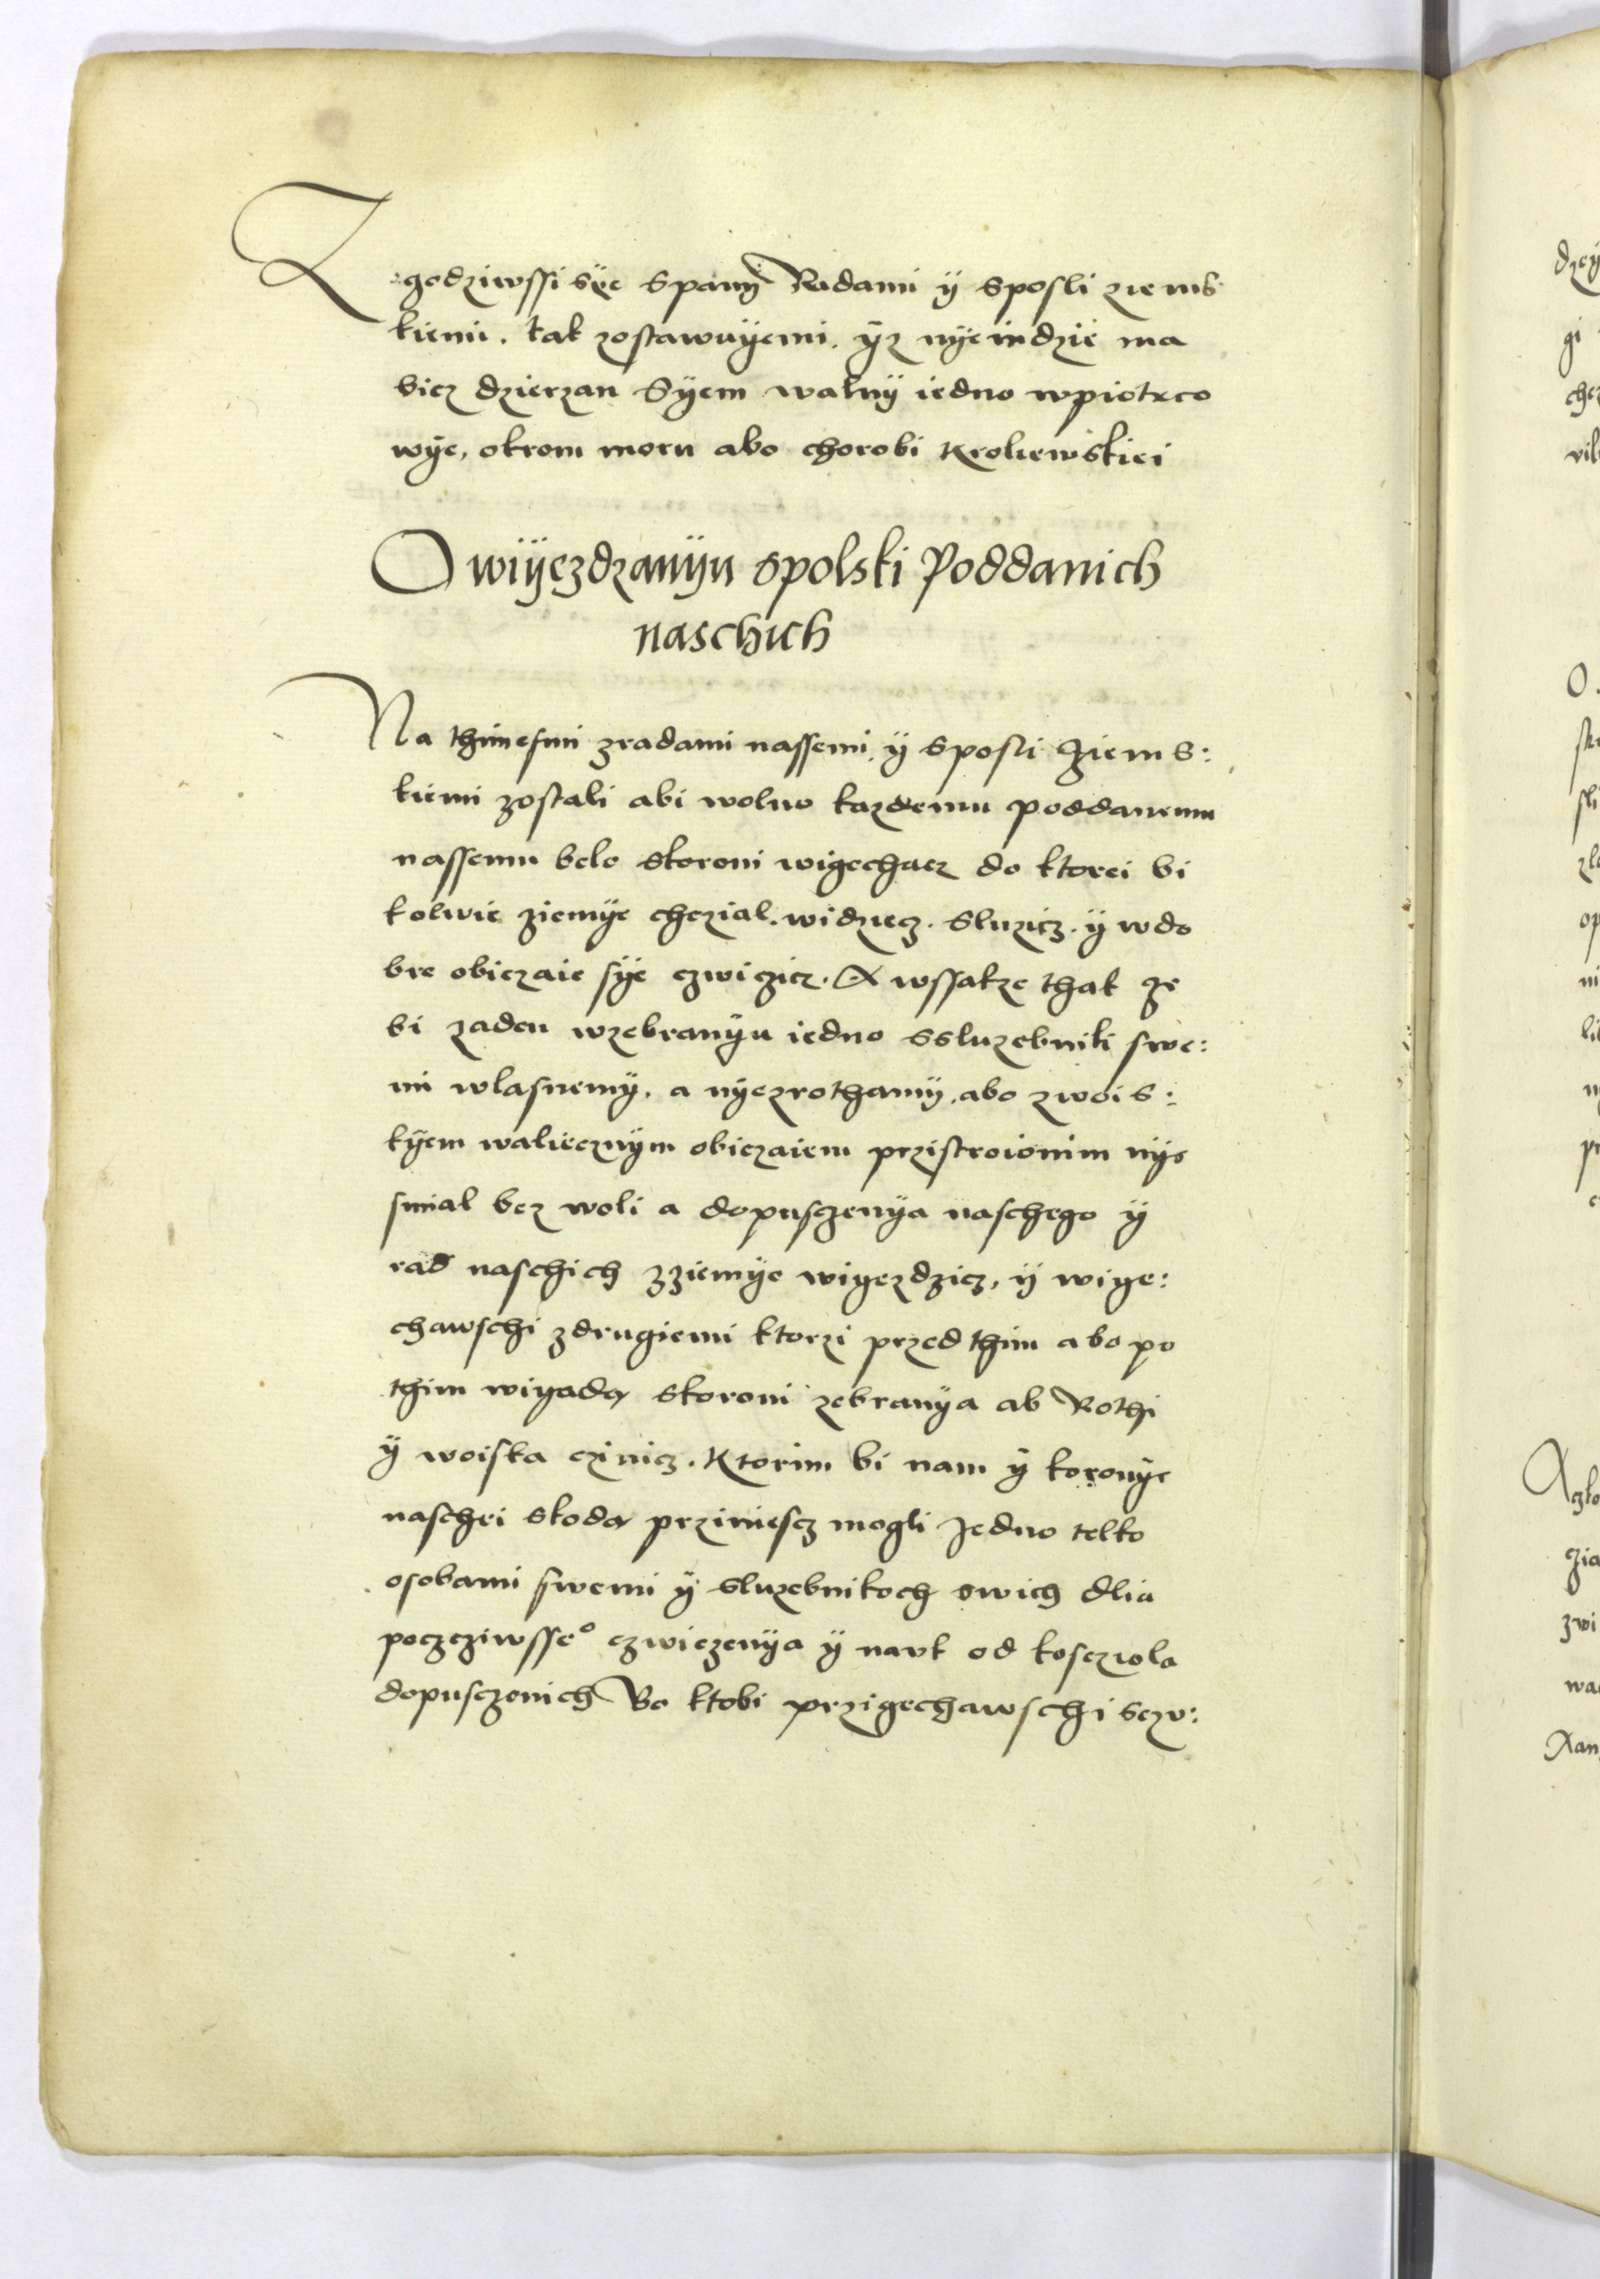 Zgodziwssi sÿe spanÿ Radami ÿ sposli ziems
kiemi. tak zostawuÿemi. ÿz nÿeindzie ma
bicz dzierzan Sÿem walnÿ iedno wpiotrco
wÿe, okrom moru abo chorobi Kroliewskiei
O wÿÿezdzanÿu spolski Poddanich
naschich
Na thimesmi zradami nassemi, ÿ sposli Ziems:
kiemi zostali abi wolno kazdemu poddanemu
nassemu belo skoroni wigechacz do ktorei bi
kolwie ziemÿe chczial. widziecz. sluzicz. ÿ wdo
bre obiczaie sÿe czwiczicz. A wssakze thak ze
bi zaden wzebranÿu iedno ssluzebniki swe:
mi wlasnemÿ. a nÿezrothamÿ. abo zwois:
kÿem walieznÿm obiczaiem przistroionim nÿe
smial bez woli a dopusczenÿa naschego ÿ
rad naschich zziemÿe wigezdzicz, ÿ wige:
chawschi zdrugiemi ktorzi przed thim abo po
thim wiyada skoroni zebranÿa ab Rothi
ÿ woiska czinicz. Ktorim bi nam ÿ koronÿe
naschei skoda prziniescz mogli Jedno telko
osobami swemi ÿ sluzebnikoch swich dlia
poczcziwsse° czwiczenÿa ÿ nauk od koscziola
dopusczonich Bo ktobi przigechawschi sczu:
dzeÿ
gi
chcz
O
sli
op
ni
zia
zwi